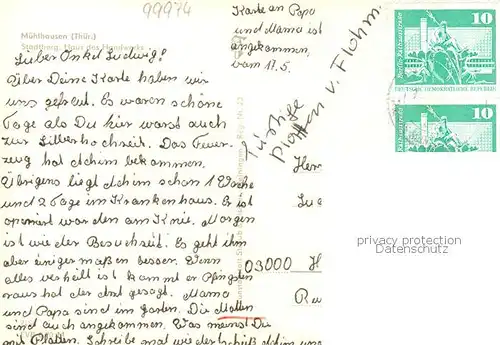 99974
Mühlhausen (Thür.)
Stadtberg, Haus des Handwerks
Lieber Onkel Ludwig!
Über Deine Karte haben wir
uns gefreut. Es waren schöne
Tage als Du hier warst auch
zur Silberhochzeit. Das Feuer-
zeug hat Achim bekommen.
Übrigens liegt Achim schon 1 Woche
und 2 Tage im Krankenhaus. Es ist
operiert worden am Knie. Morgen
ist wieder Besuchszeit. Es geht ihm
aber einiger maßen besser. Wenn
alles verheilt ist kommt er Pfingsten
raus hat der Arzt gesagt. Mama
und Papa sind im Garten. Die Matten
sind auch angekommen. Was meinst Du
mit Platten. Schreibe mal wie der
Karte an Papa
und Mama ist
angekommen,
vom 17.5.
v. Flohm.
Her
Lu
09000 H
Ru
10
Berlin, Rathausstraße
DEUTSCHE DEMOKRATISCHE REPUBLIK
10
Rathausstraße
privacy protection
Datenschutz